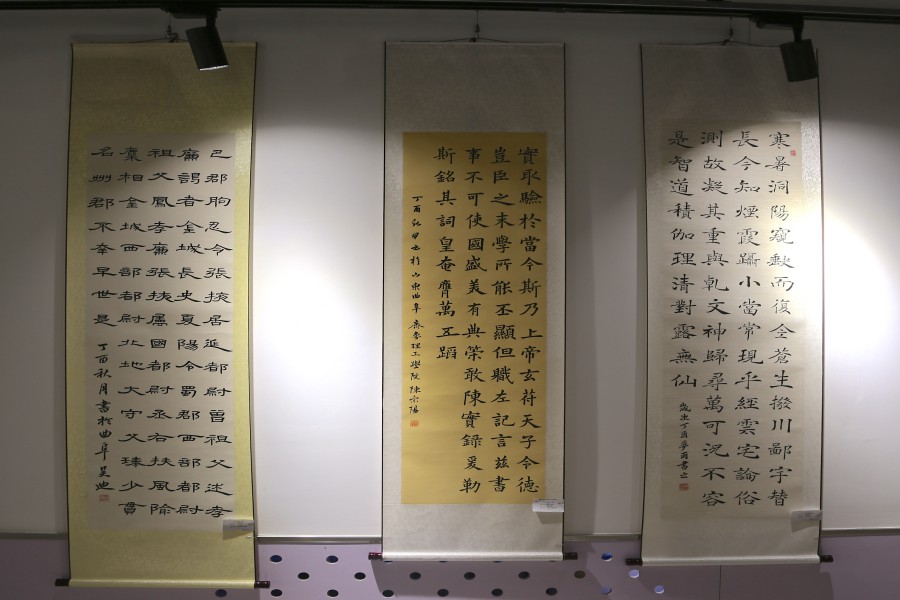 寒暑洞陽窺缺而復全蒼生撥川鄙字替
長今知煙霞躡小當常現乎經雲宅論俗
測故凝其重與軋文神歸尋萬可況不容
是智道積伽理清對露無仙
丁酉夢雨書
實取驗於當今斯乃上帝玄符天子令德
豈臣之末學所能丕顯但職左記言茲書
事不可使國盛美有典榮敢陳實錄爰勒
斯銘其詞皇奄膺萬五蹈
丁酉秋中書於山東曲阜齊魯理工學院陳宗陽
巴郡朐忍令張掖居延都尉曾祖父述孝
廉謁者金城長史夏陽令蜀郡西部都尉
祖父鳳孝廉張掖屬國都尉丞右扶風隃
麋相金城西部都尉北地大守父琫少貫
名州郡不幸早世是
丁酉秋月書於曲阜吴迪